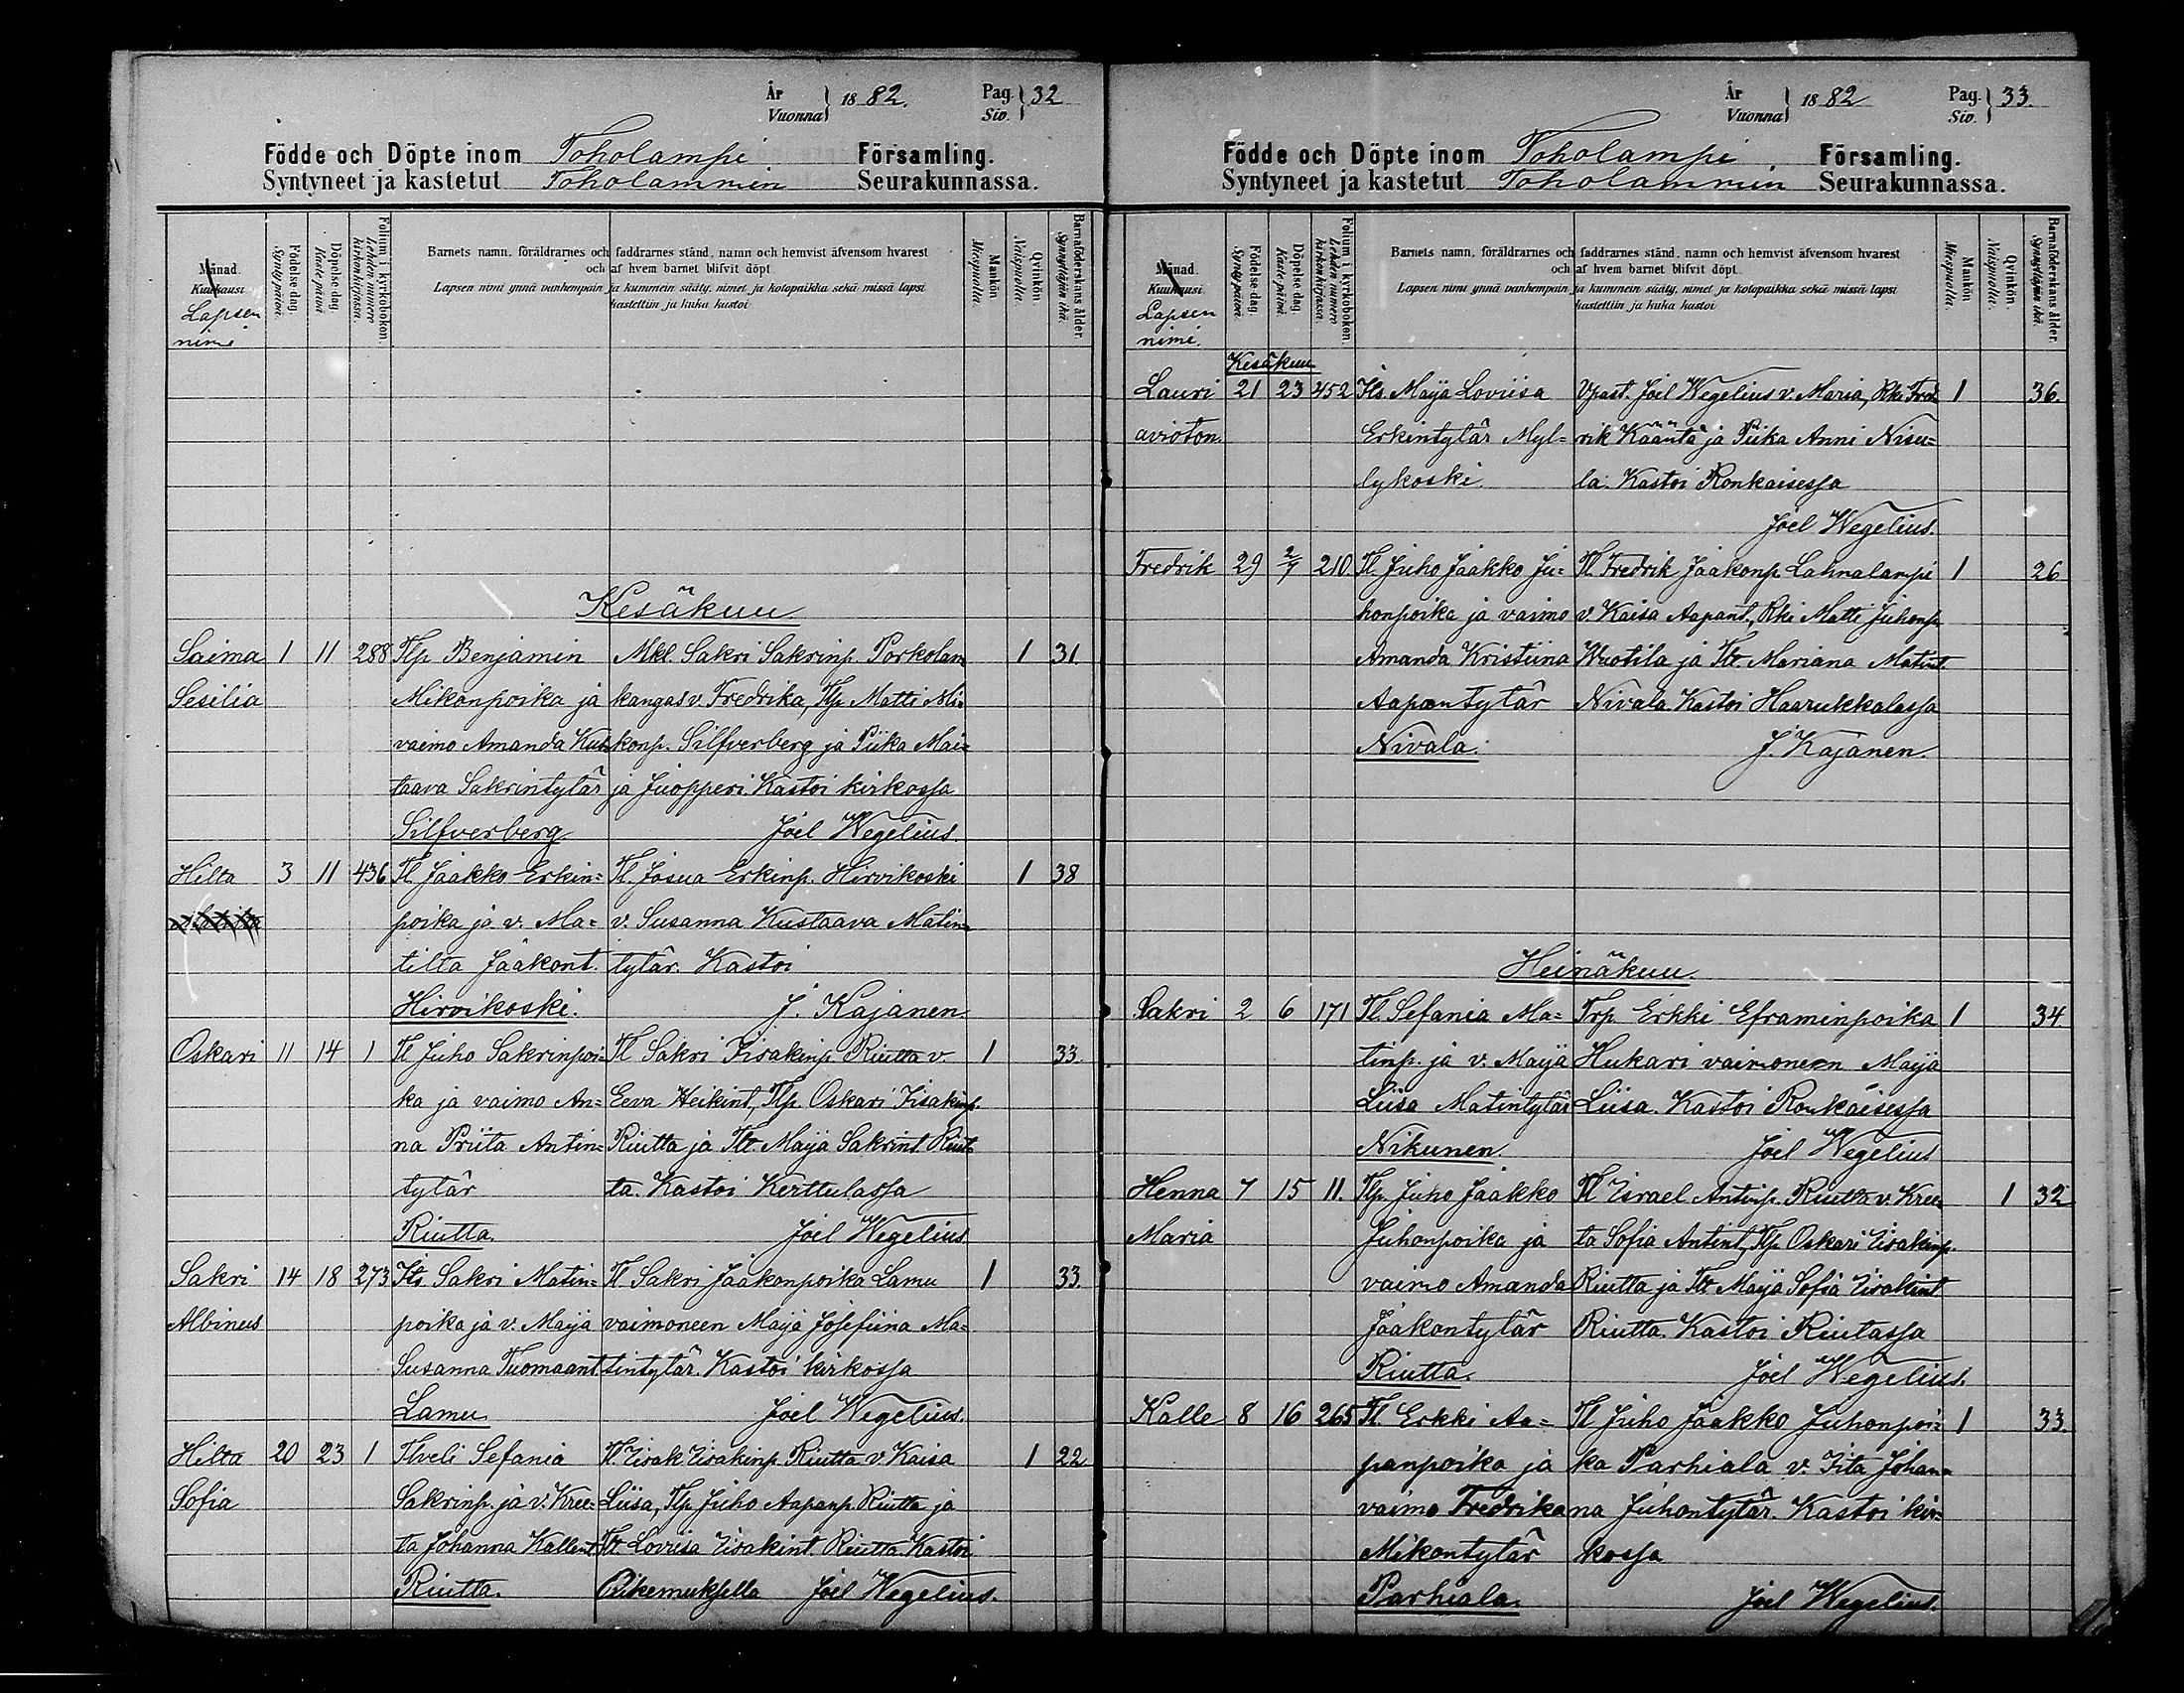 År Vuonna } 1882. Pag. Siv. } 32
Födde och Döpte inom Toholampi Församling.
Syntyneet ja kastetut Toholammin Seurakunnassa.
Månad. Kuukausi
Lapsen nimi
Födelse dag. Syntypäivä.
Döpelse dag. Kastepäivä
Folium i kyrkobokon. Lehden numero kirkonkirjassa.
Barnets namn, föräldrarnes och faddrarnes stånd, namn och hemvist äfvensom hvarest
och af hvem barnet blifvit döpt.
Lapsen nimi ynnä vanhempain ja kummein sääty, nimet ja kotopaikka sekä missä lapsi
kastettiin ja kuka kastoi
Mankön Miespuolia.
Qvinkön. Naispuolia.
Barnaföderskans ålder. Synnyttäjän ikä.
Kesäkuu.
Saima 1 11 288 Tlp Benjamin Mkl. Sakri Sakrinp. Porkolan 1 31
Sesilia Mikonpoika ja kangas v. Fredrika, Tlp. Matti Mi-
vaimo Amanda Kus- konp. Silfverberg ja Piika Mai=
taava Sakrintytär ja Juopperi. Kastoi kirkossa
Silfverberg Joel Wegelius.
Hilta 3 11 436 Tl Jaakko Erkin= Tl Josua Erkinp. Hirvikoski 1 38
poika ja v. Ma= v. Susanna Kustaava Matin=
tilta Jaakont. tytär. Kastoi
Hirvikoski. J. Kajanen
Oskari 11 14 1 Tl Juho Sakrinpoi- Tl Sakri Iisakinp Riutta v. 1 33.
ka ja vaimo An= Eeva Heikint, Tlp. Oskari Iisakinp.
na Priita Antin= Riutta ja Tlt. Maija Sakrint. Riut-
tytär ta. Kastoi Kerttulassa
Riutta. Joel Wegelius
Sakri 14 18 273 Its. Sakri Matin= Tl Sakri Jaakonpoika Lamu 1 33.
Albinus poika ja v. Maija vaimoneen Maija Josefiina Ma=
Susanna Tuomaant tintytär. Kastoi kirkossa
Lamu Joel Wegelius.
Hilta 20 23 1 Tlveli Sefania Tl Iisak Iisakinp Riutta v. Kaisa 1 22
Sofia Sakrinp. ja v. Kree- Liisa, Tlp. Juho Aapanp. Riutta ja
ta Johanna Kallent. Tlt. Loviisa Iisakint. Riutta. Kastoi
Riutta. Joel Wegelius.
År Vuonna } 1882 Pag. Siv. } 33.
Födde och Döpte inom Toholampi Församling.
Syntyneet ja kastetut Toholammin Seurakunnassa.
Månad. Kuukausi
Lapsen nimi.
Födelse dag. Syntypäivä.
Döpelse dag. Kastepäivä.
Folium i kyrkobokon. Lehden numero kirkonkirjassa.
Barnets namn, föräldrarnes och faddrarnes stånd, namn och hemvist äfvensom hvarest
och af hvem barnet blifvit döpt.
Lapsen nimi ynnä vanhempain ja kummein sääty, nimet ja kotopaikka sekä missä lapsi
kastettiin ja kuka kastoi
Mankön Miespuolia.
Qvinkön. Naispuolia.
Barnaföderskans ålder. Synnyttäjän ikä.
Kesäkuu
Lauri 21 23 452 Its. Maija Loviisa Vpast. Joel Wegelius v. Maria, Rki Fred- 1 36.
avioton. Erkintytär Myl= rik Kääntä ja Piika Anni Nisu=
lykoski. la. Kastoi Ronkaisessa
Joel Wegelius.
Fredrik 29 2/7 210 Tl. Juho Jaakko Ju= Tl. Fredrik Jaakonp. Lahnalampi 1 26
honpoika ja vaimo v. Kaisa Aapant., Rki Matti Juhonp
Amanda Kristiina Wuotila ja Tlt. Mariana Matint.
Aapantytär Nivala. Kastoi Haarukkalassa
Nivala. J. Kajanen.
Heinäkuu.
Sakri 2 6 171 Tl. Sefania Ma= Trp. Erkki Eframinpoika 1 34
tinp. ja v. Maija Hukari vaimoneen Maija
Liisa Matintytär Liisa. Kastoi Ronkaisessa
Nikunen. Joel Wegelius
Henna 7 15 11. Tlp. Juho Jaakko Tl Israel Antinp. Riutta v. Kree- 1 32
Maria Juhonpoika ja ta Sofia Antint, Tlp. Oskari Iisakinp.
vaimo Amanda Riutta ja Tlt Maija Sofia Iisakint
Jaakontytär Riutta. Kastoi Riutassa
Riutta. Joel Wegelius.
Kalle 8 16 265 Tl. Erkki Aa= Tl Juho Jaakko Juhonpoi= 1 33.
panpoika ja ka Parhiala v. Iita Johan=
vaimo Fredrika na Juhontytär. Kastoi kir=
Mikontytär kossa
Parhiala. Joel Wegelius.